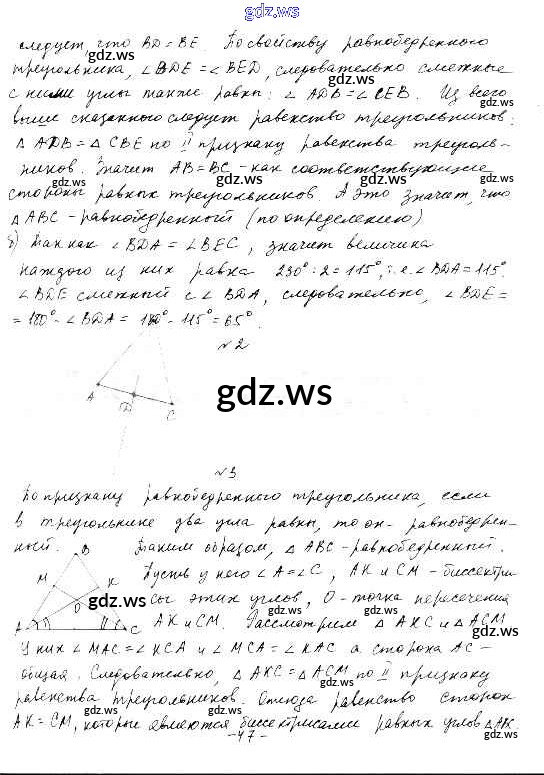 gdz.ws
следует, что BD = BE. По свойству равнобедренного
треугольника, ∠BDE = ∠BED, следовательно смежные
с ними углы также равны: ∠ADB = ∠CEB. Из всего
выше сказанного следует равенство треугольников:
△ADB = △CBE по II признаку равенства треуголь-
ников. Значит AB = BC - как соответствующие
стороны равных треугольников. А это значит, что
△ABC - равнобедренный (по определению)
б) Так как ∠BDA = ∠BEC, значит величина
каждого из них равна 230° : 2 = 115°, т.е. ∠BDA = 115°.
∠BDE смежный с ∠BDA, следовательно, ∠BDE =
= 180° - ∠BDA = 180° - 115° = 65°.
№2
A D C
gdz.ws
№3
По признаку равнобедренного треугольника, если
в треугольнике два угла равны, то он - равнобедрен-
ный. Таким образом, △ABC - равнобедренный.
Пусть у него ∠A = ∠C, AK и CM - биссектри-
сы этих углов, O - точка пересечения
AK и CM. Рассмотрим △AKC и △ACM
B
M K
O
A C
У них ∠MAC = ∠KCA и ∠MCA = ∠KAC а сторона AC -
общая. Следовательно, △AKC = △ACM по II признаку
равенства треугольников. Отсюда равенство сторон
AK = CM, которые являются биссектрисами равных углов △ABC.
-47-
gdz.ws
gdz.ws
gdz.ws
gdz.ws
gdz.ws
gdz.ws
gdz.ws
gdz.ws